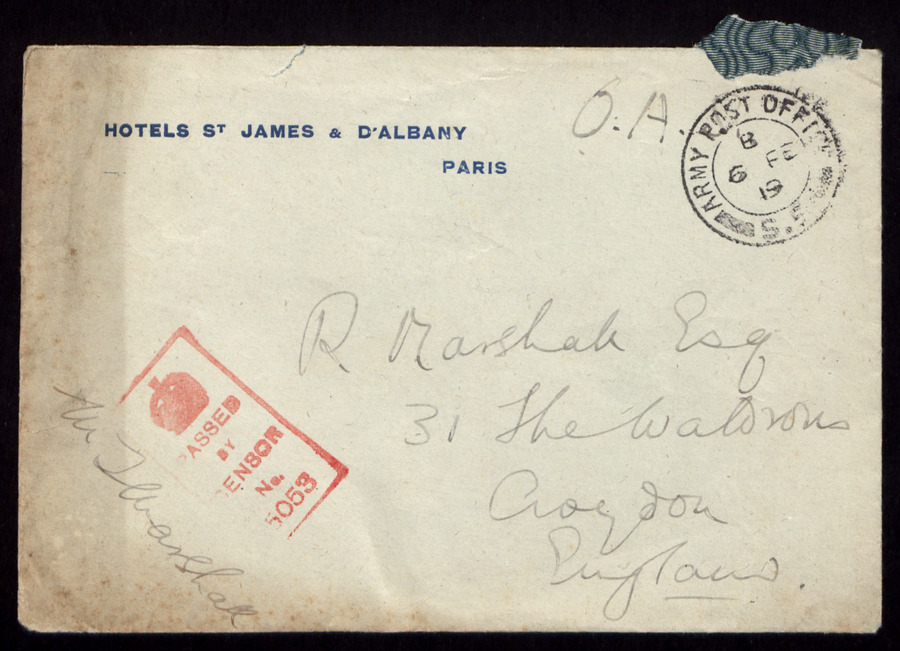 HOTELS ST JAMES & D'ALBANY
PARIS
O.A.
ARMY POST OFFICE
B
6 FE
19
S.5
R Marshall Esq
31 The Waldrons
Croydon
England.
PASSED
BY
CENSOR
No.
5053
Marshall